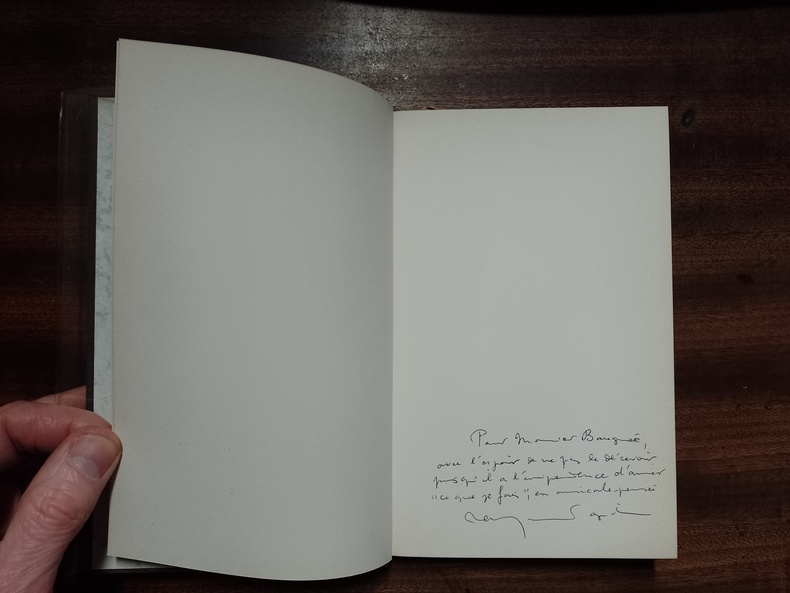 Pour Monsieur
avec l'espoir de ne pas le décevoir
puisqu'il a l'imprudence d'aimer
"ce que je fais", en amicale pensée